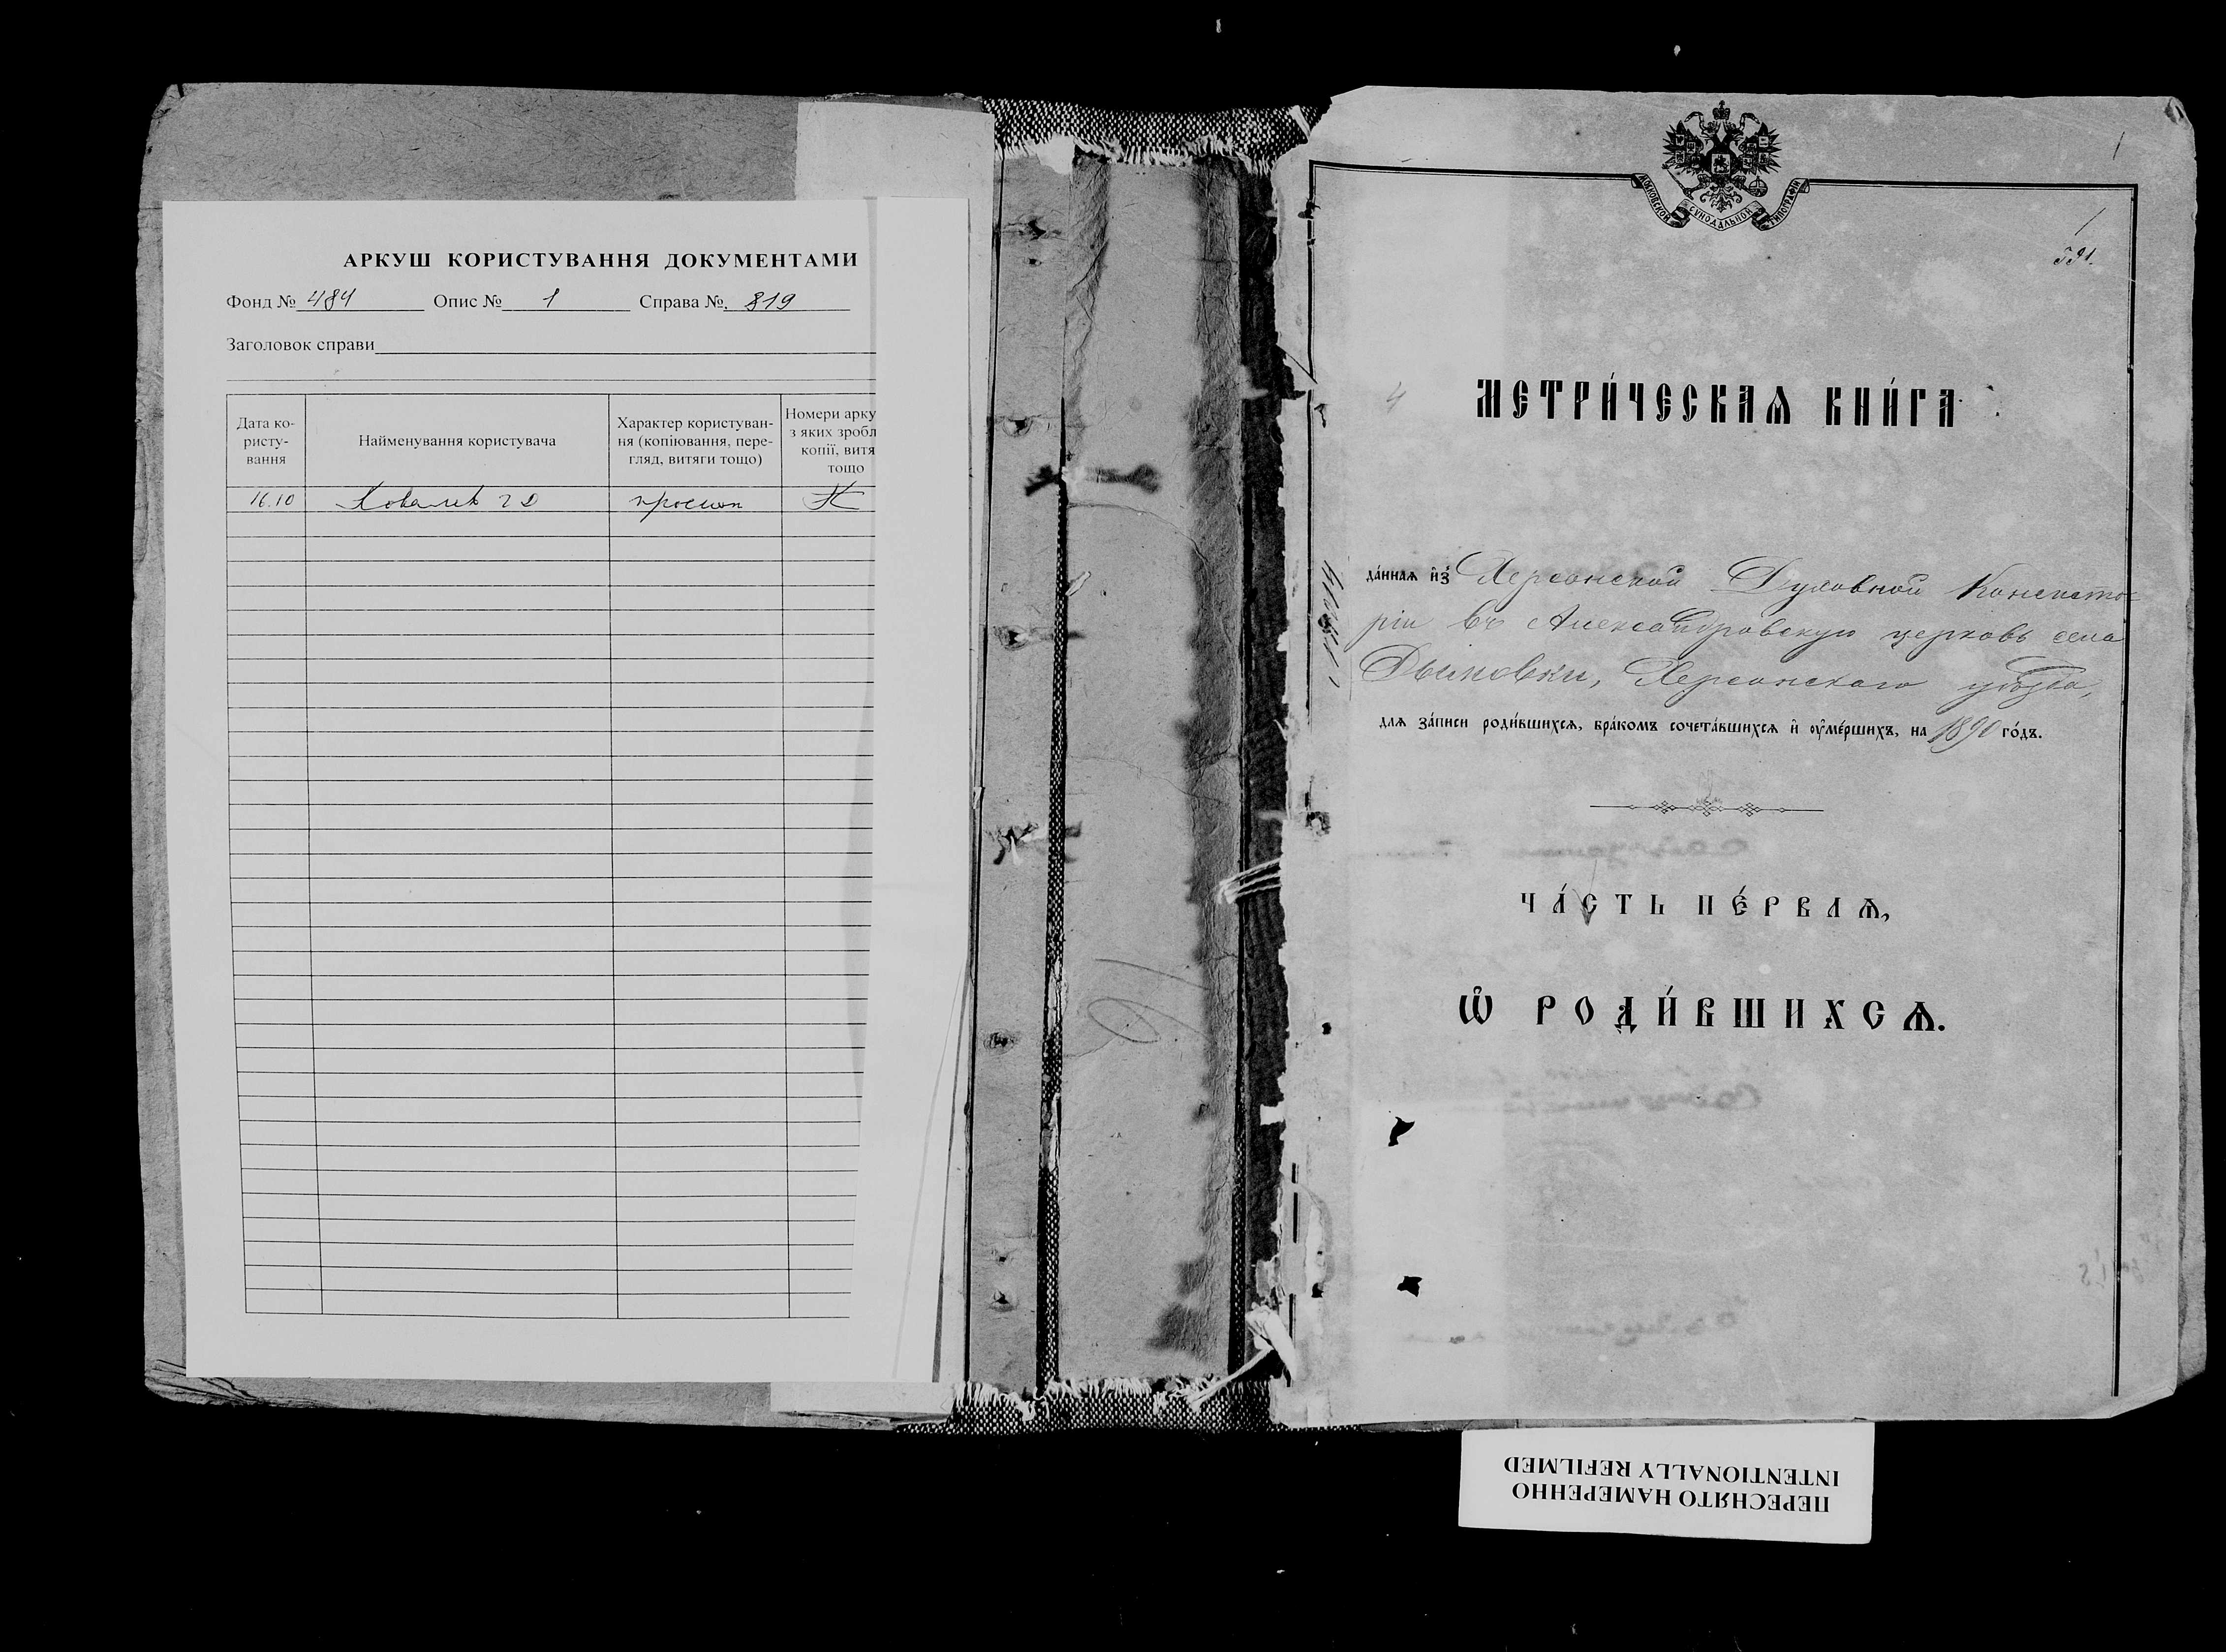 АРКУШ КОРИСТУВАННЯ ДОКУМЕНТАМИ
Фонд № 484 Опис № 1 Справа №. 819
Заголовок справи
Дата ко-
ристу-
вання
Найменування користувача
Характер користуван-
ня (копіювання, пере-
гляд, витяги тощо)
Номери арку
з яких зробл
копії, витя
тощо
16.10
МОСКОВСКОЙ СѴНОДАЛЬНОЙ ТИПОГРАФІИ
1
1
591.
4
МЕТРИ́ЧЕСКАѦ КНИ́ГА
да́ннаѧ и҆з̾ Херсонской Духовной Консисто-
ріи въ Александровскую церковь села
Дымовки, Херсонскаго уѣзда,
длѧ за́писи роди́вшихсѧ, бра́комъ сочета́вшихсѧ и҆ ᲂу҆ме́ршихъ, на 1890 го́дъ.
ЧА́СТЬ ПЕ́РВАѦ,
Ѽ РОДИ́ВШИХСѦ.
ПЕРЕСНЯТО НАМЕРЕННО
INTENTIONALLY REFILMED